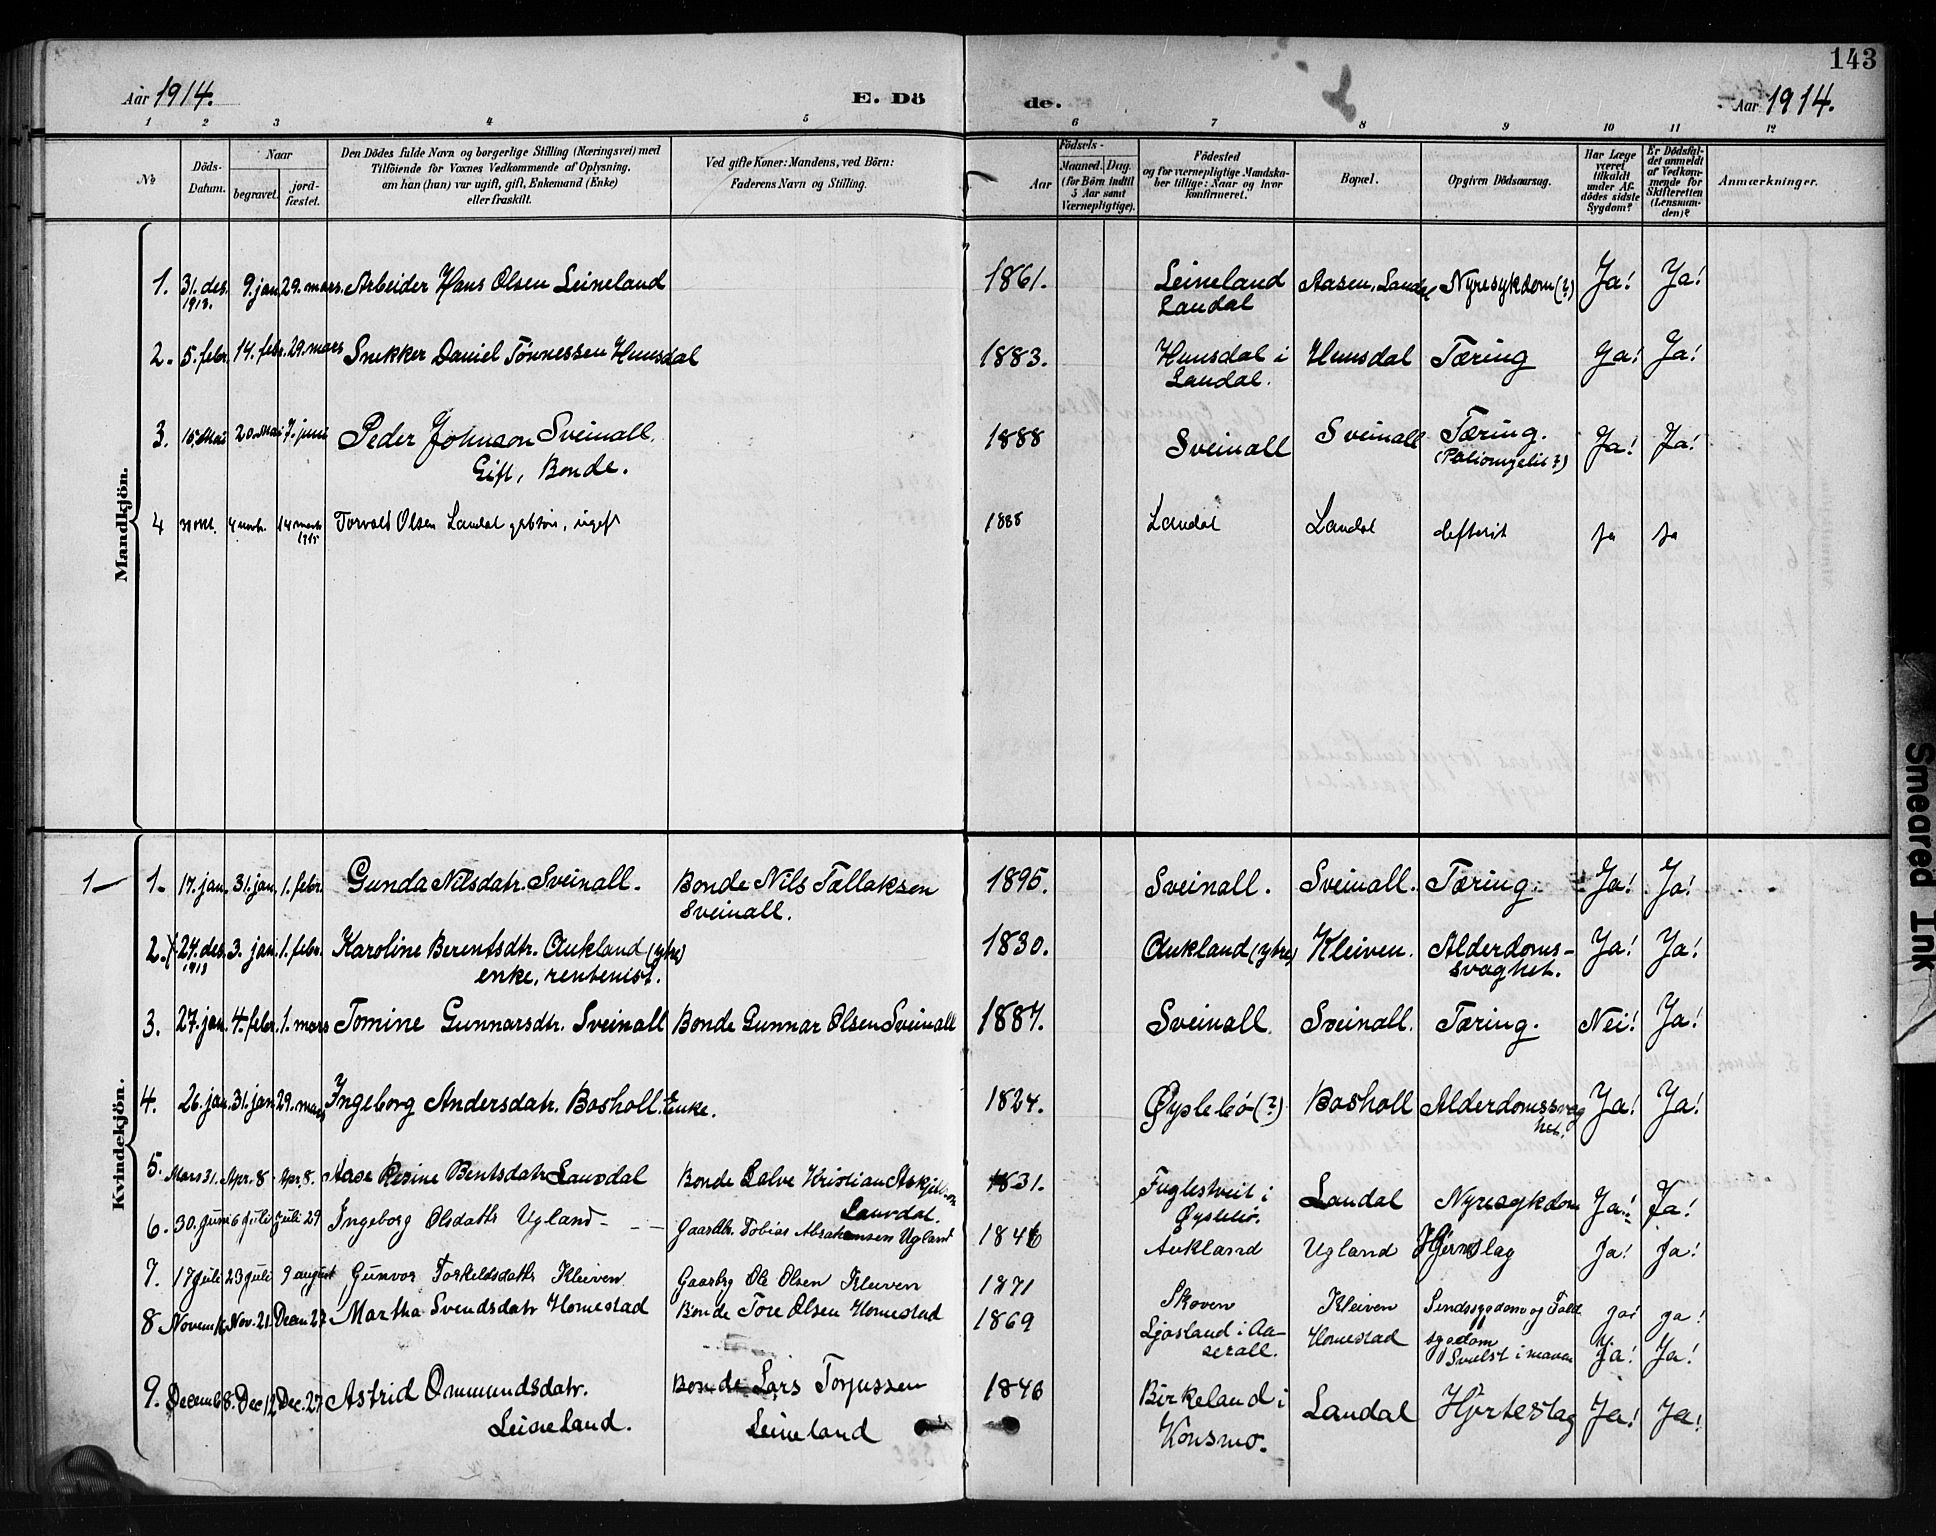 143
Aar 1914. E. Dö de. Aar 1914.
1 2 3 4 5 6 7 8 9 10 11 12
No
Döds-Datum.
Naar
begravet.
jord-fæstet.
Den Dödes fulde Navn og borgerlige Stilling (Næringsvei) med
Tilföiende for Voxnes Vedkommende af Oplysning.
om han (hun) var ugift, gift, Enkemand (Enke)
eller fraskilt.
Ved gifte Koner: Mandens, ved Börn:
Faderens Navn og Stilling.
Födsels-
Aar
Maaned. Dag.
(for Börn indtil
5 Aar samt
Værnepligtige).
Födested
og for værnepligtige Mandskaber tillige: Naar og hvor
konfirmeret.
Bopæl.
Opgiven Dödsaarsag.
Har Læge
været
tilkaldt
under Afdödes sidste
Sygdom?
Er Dödsfaldet anmeldt
af Vedkommende for
Skifteretten
(Lensmanden)?
Anmærkninger.
Mandkjön.
1. 31. des. 1913. 9. jan. 29. mars. Arbeider Hans Olsen Leineland 1861. Leineland Aasen, Laudal Nyresykdom (?) Ja! Ja!
Laudal
2. 5. febr. 14. febr. 29. mars Snekker Daniel Tönnessen Hunsdal 1883. Hunsdal i Hunsdal Tæring Ja! Ja!
Laudal.
3. 15. Mai 20. Mai 7. juni Peder Johnson Sveinall. 1888 Sveinall Sveinall Tæring. Ja! Ja!
Gift, Bonde. (Poliomyelit?)
4 4 novbr. 14 marts 1915 Torvald Olsen Laudal gbsøn, ugift 1888 Laudal Laudal defterit Ja Ja
Kvindekjön.
1 1. 17. jan. 31. jan. 1. febr. Gunda Nilsdatr. Sveinall. Bonde Nils Tallaksen 1895. Sveinall. Sveinall. Tæring. Ja! Ja!
Sveinall.
2. 24. des. 1913 3. jan. 1. febr. Karoline Berentsdtr. Aukland (ytre) 1830. Aukland (ytre) Kleiven. Alderdoms- Ja! Ja!
enke, rentenist. svaghet.
3. 27. jan. 4. febr. 1. mars Tomine Gunnarsdtr. Sveinall Bonde Gunnar Olsen Sveinall 1887. Sveinall. Sveinall. Tæring. Nei! Ja!
4. 26. jan. 31. jan. 29. mars Ingeborg Andersdatr. Bosholl. Enke. 1824. Øyslebö (?) Bosholl Alderdomssvag Ja! Ja!
het.
5. Mars 31. Apr. 8 Apr. 8. Aase Resine Bentsdatr Laudal Bonde Salve Kristian Askjellsen 1831. Fuglestveit i Laudal Nyresykdom Ja! Ja!
Laudal. Øyslebö.
6. 30. Juni 6 Juli Juli 29 Ingeborg Olsdattr Ugland Gaardbr. Tobias Abrahamsen Ugland 1846 Aukland Ugland Hjerneslag Ja! Ja!
7. 17 Juli 23 juli 9 august Gunvor Torkeldsdattr Kleiven Gaardbr Ole Olsen Kleiven 1871 Skoven Kleiven Sindssygdom og Fald Ja! Ja!
sygdom
8 Novem 16 Nov. 21. Decm 27 Martha Svendsdatr Homestad Bonde Tore Olsen Homestad 1869 Ljosland i Aa- Homestad Svulst i maven Ja! Ja!
serall.
9. Decemb 8. Dec 12 Dec. 27 Astrid Ommundsdatr. Bonde Lars Torjussen 1846 Birkeland i Laudal Hjerteslag Ja! Ja!
Leineland. Leineland Konsmo.
Smeared Ink